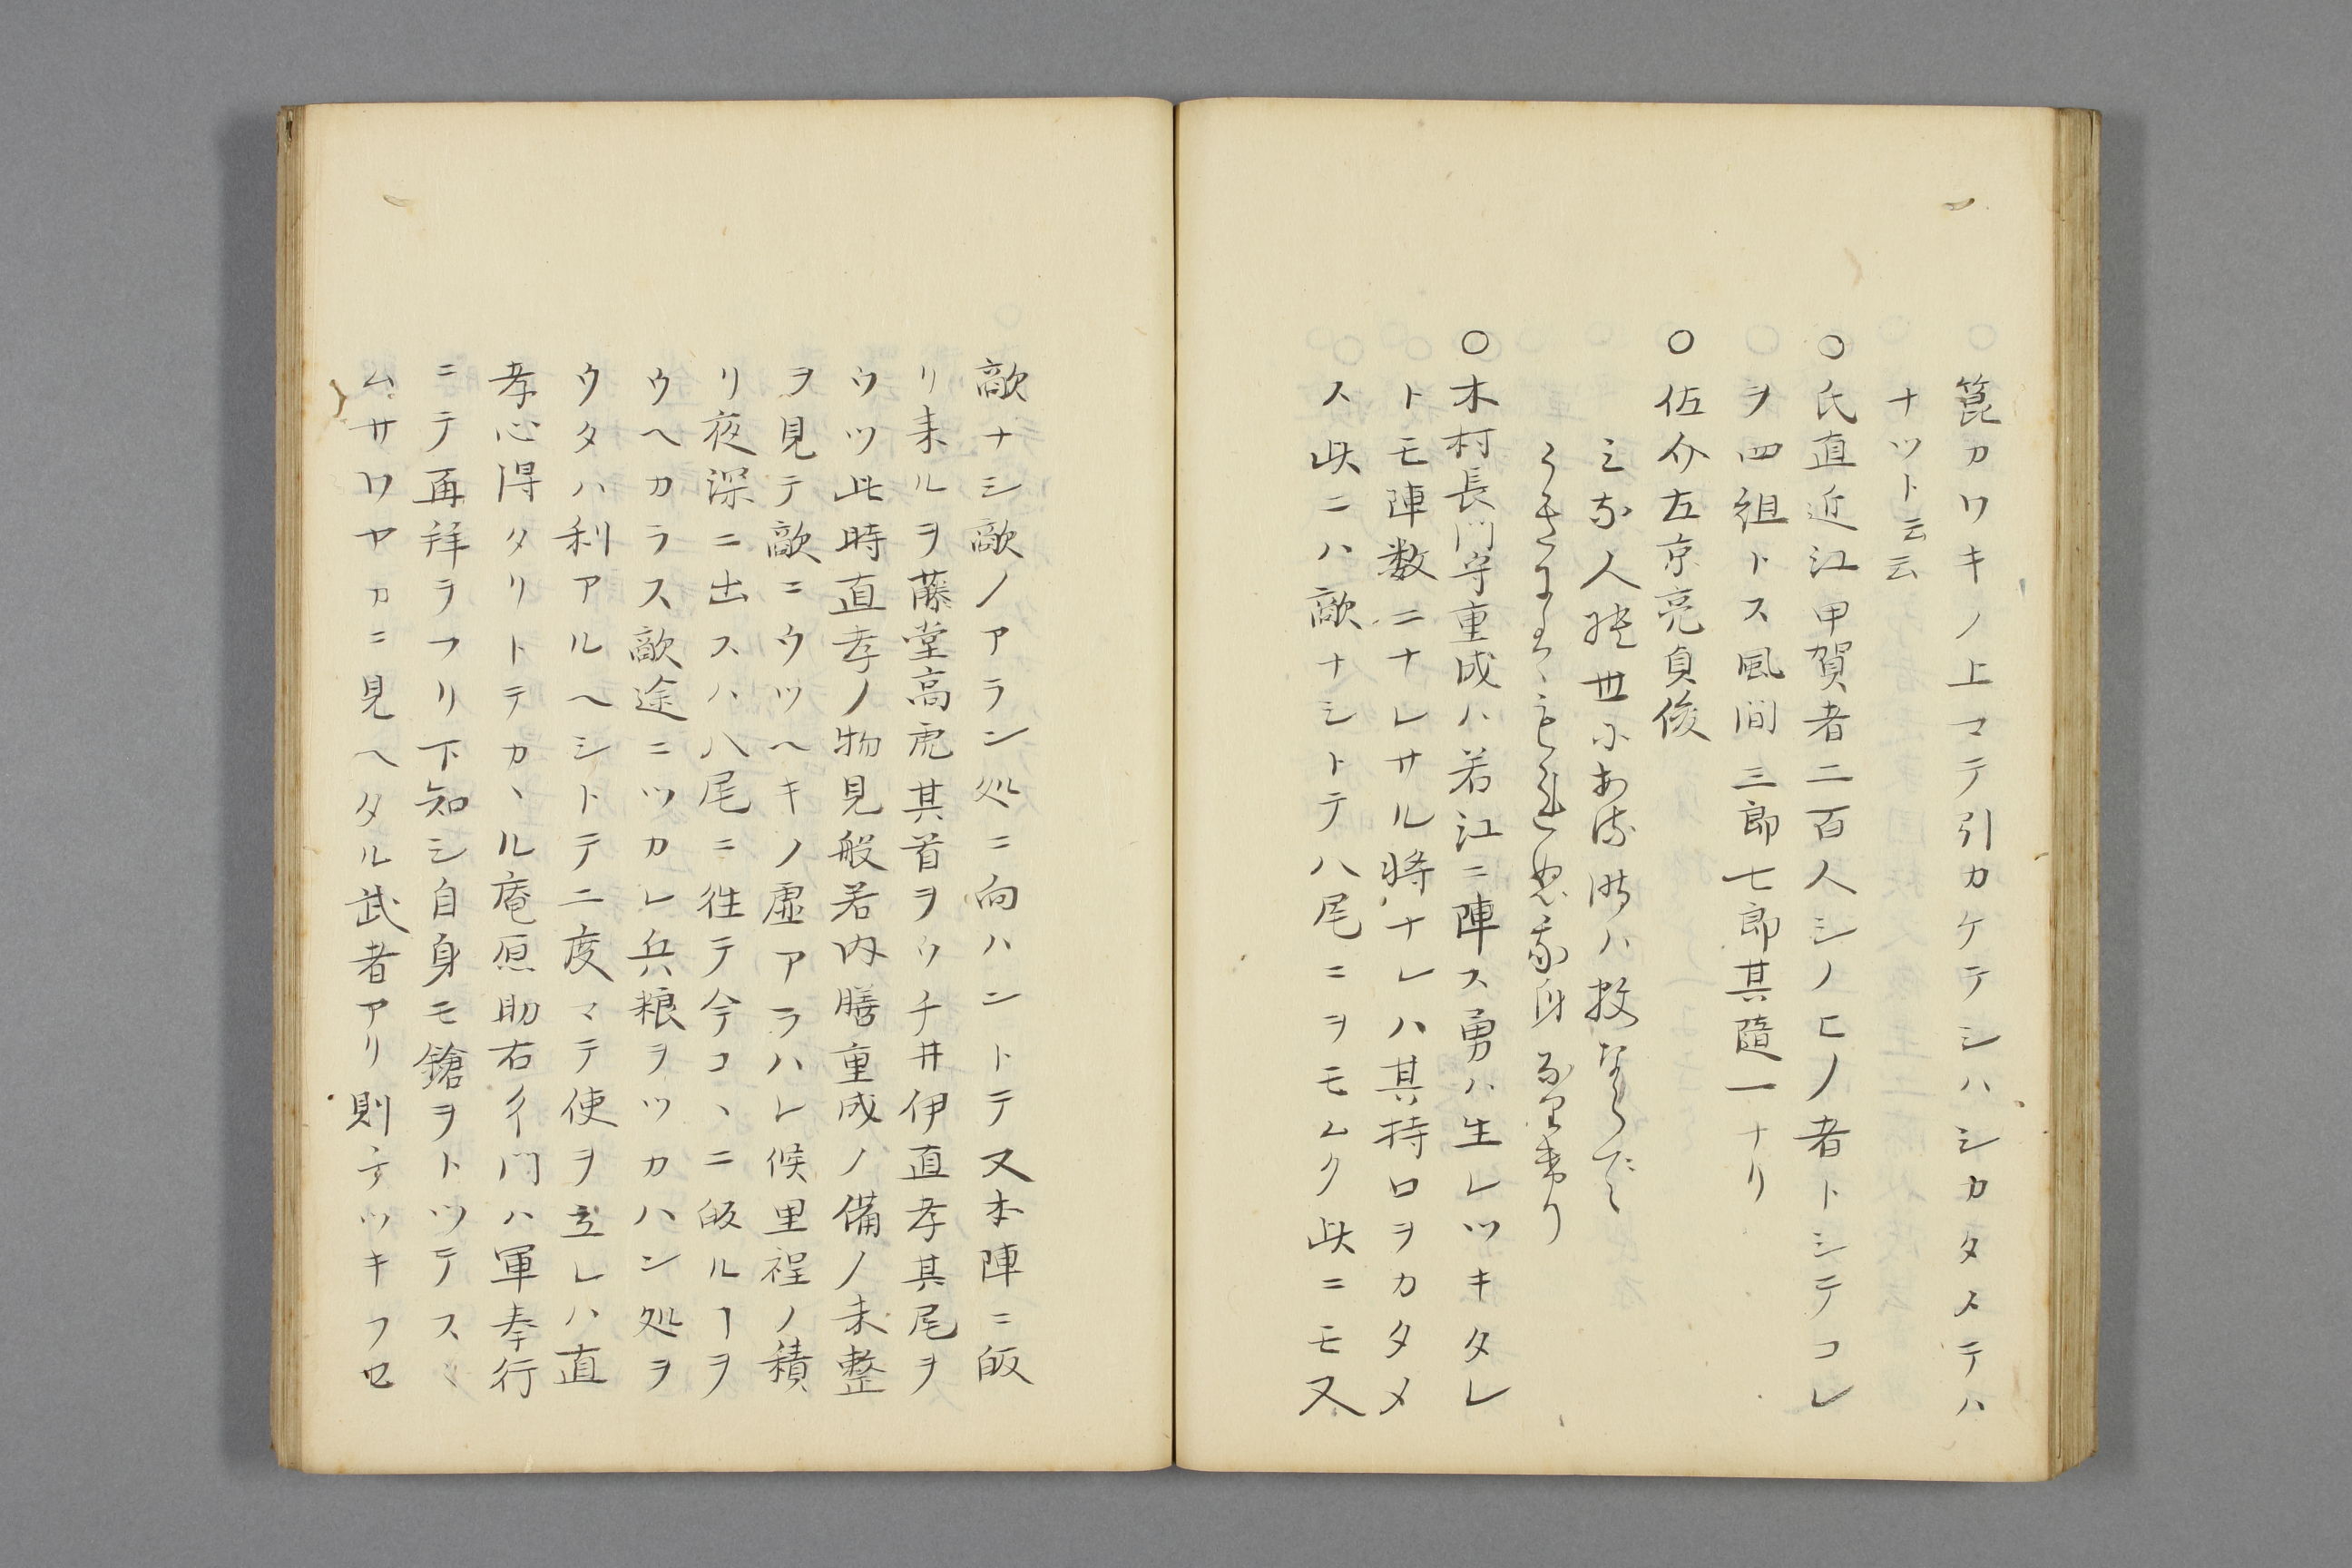 箆カワキノ上マテ引カケテシハシカタメテハ
ナツト云云
○氏直近江甲賀者二百人シノヒノ者トシテコレ
ヲ四組トス風間三郎七郎其隨一ナリ
○佐介左京亮貞俊
ミな人の世にある時ハ数ならて
うきにハもれぬ我身なりけり
○木村長門守重成ハ若江ニ陣ス勇ハ生レツキタレ
トモ陣数ニナレサル将ナレハ其持口ヲカタメ
ス此ニハ敵ナシトテ八尾ニヲモムク此ニモ又
敵ナシ敵ノアラン処ニ向ハントテ又本陣ニ皈
リ来ルヲ藤堂高虎其首ヲウチ井伊直孝其尾ヲ
ウツ此時直孝ノ物見般若内膳重成ノ備ノ未整
ヲ見テ敵ニウツヘキノ虚アラハレ候里程ノ積
リ夜深ニ出スハ八尾ニ往テ今コヽニ皈ルヿヲ
ウヘカラス敵途ニツカレ兵粮ヲツカハン処ヲ
ウタハ利アルヘシトテ二度マテ使ヲ立レハ直
孝心得タリトテカヽル庵原助右衛門ハ軍奉行
ニテ再拝ヲフリ下知シ自身モ鎗ヲトツテスヽ
ムサワヤカニ見ヘタル武者アリ則テツキフセ